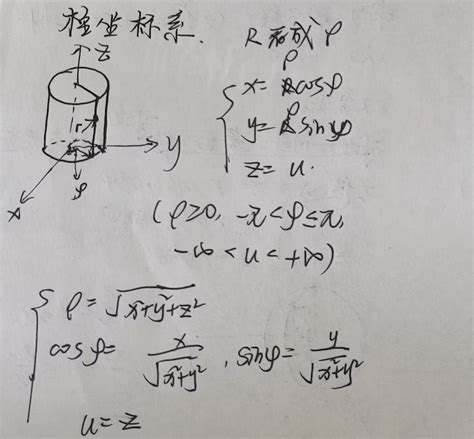 柱坐标系. R 都改成 ρ
z
r
y
φ
x
{ x = ρcosφ
y = ρsinφ
z = u.
(ρ≥0, -π<φ≤π,
-∞ < u < +∞)
{ ρ = √(x²+y²+z²)
cosφ = x/√(x²+y²), sinφ = y/√(x²+y²)
u = z